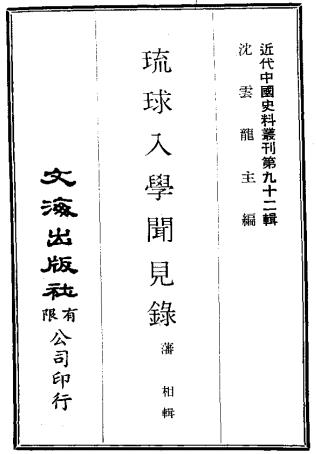 近代中國史料叢刊第九十二輯
沈雲龍主編
琉球入學聞見錄
潘相輯
文海出版社
有限
公司印行